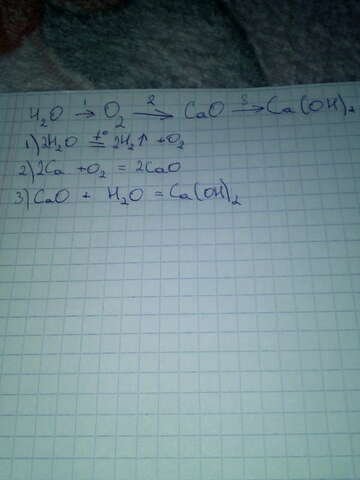 H₂O →¹ O₂ →² CaO →³ Ca(OH)₂
1) 2H₂O =t° 2H₂↑ + O₂
2) 2Ca + O₂ = 2CaO
3) CaO + H₂O = Ca(OH)₂